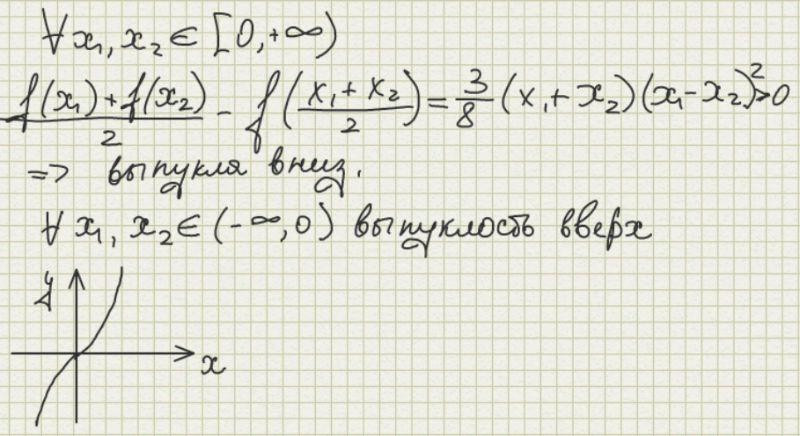 ∀ x₁, x₂ ∈ [0, +∞)
(f(x₁) + f(x₂))/2 - f((x₁ + x₂)/2) = 3/8 (x₁ + x₂)(x₁ - x₂)² > 0
=> выпукла вниз.
∀ x₁, x₂ ∈ (-∞, 0) выпуклость вверх
y
x